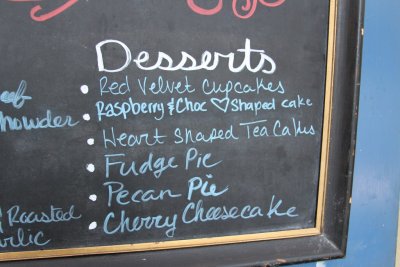 Desserts
• Red Velvet Cupcakes
• Raspberry & Choc ♡ Shaped cake
• Heart Shaped Tea Cakes
• Fudge Pie
• Pecan Pie
• Cherry Cheesecake
howder
Roasted